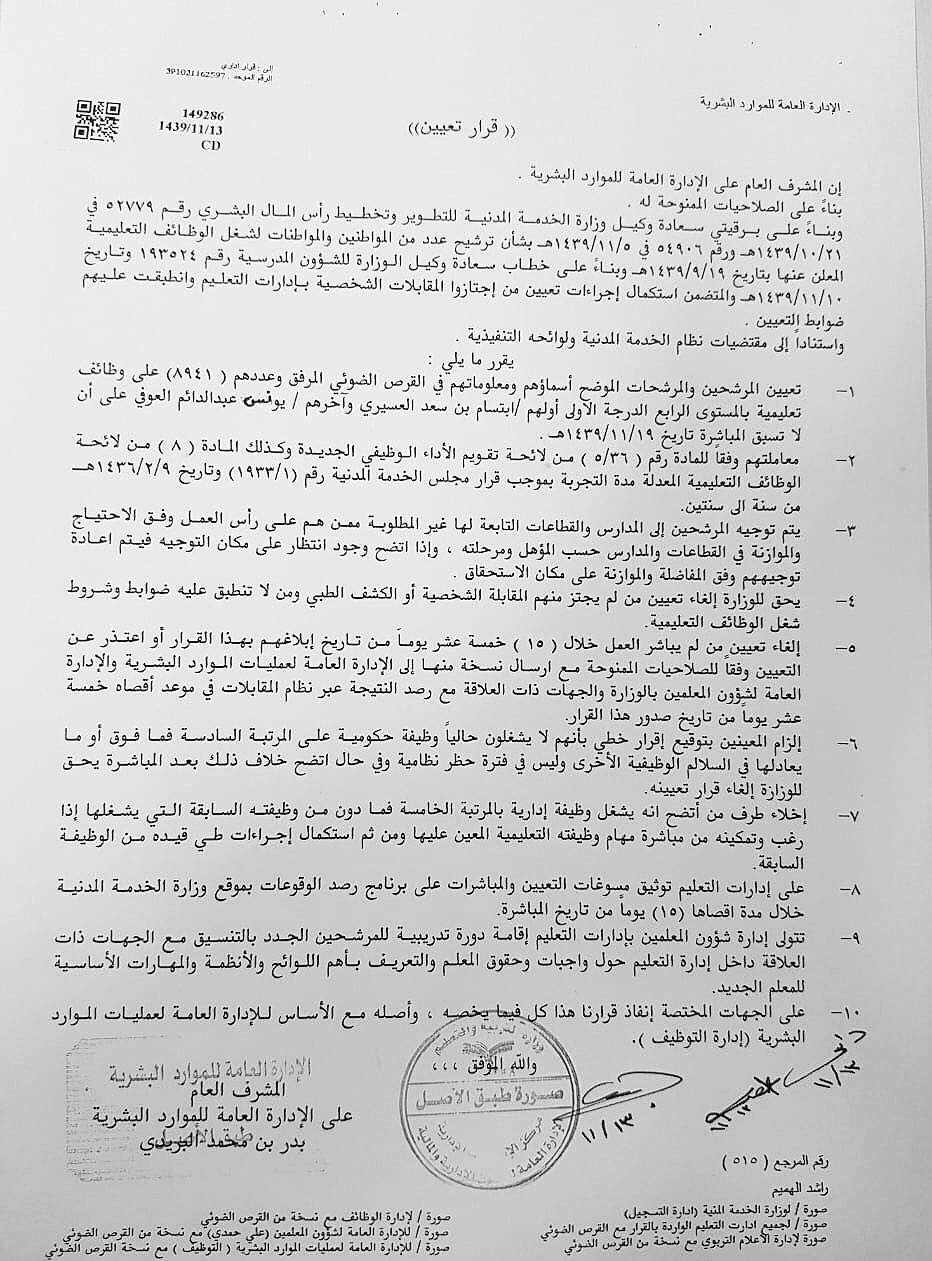 إلى : قرار اداري
الرقم الموحد : 3P1021162597
. الإدارة العامة للموارد البشرية
149286
1439/11/13
CD
(( قرار تعيين))
إن المشرف العام على الإدارة العامة للموارد البشرية .
بناءً على الصلاحيات الممنوحة له .
وبناءً على برقيتي سعادة وكيل وزارة الخدمة المدنية للتطوير وتخطيط رأس المال البشري رقم ٥٢٧٧٩ في
١٤٣٩/١٠/٢١هـ ورقم ٥٤٩٠٦ في ١٤٣٩/١١/٥هـ بشأن ترشيح عدد من المواطنين والمواطنات لشغل الوظائف التعليمية
المعلن عنها بتاريخ ١٤٣٩/٩/١٩هـ وبناءً على خطاب سعادة وكيل الوزارة للشؤون المدرسية رقم ١٩٣٥٢٤ وتاريخ
١٤٣٩/١١/١٠هـ والمتضمن استكمال إجراءات تعيين من إجتازوا المقابلات الشخصية بإدارات التعليم وانطبقت عليهم
ضوابط التعيين .
واستناداً إلى مقتضيات نظام الخدمة المدنية ولوائحه التنفيذية .
يقرر ما يلي :
١- تعيين المرشحين والمرشحات الموضح أسماؤهم ومعلوماتهم في القرص الضوئي المرفق وعددهم ( ٨٩٤١) على وظائف
تعليمية بالمستوى الرابع الدرجة الاولى أولهم /ابتسام بن سعد العسيري وآخرهم / يونس عبدالدائم العوفي على أن
لا تسبق المباشرة تاريخ ١٤٣٩/١١/١٩هـ .
٢- معاملتهم وفقاً للمادة رقم ( ٥/٣٦ ) من لائحة تقويم الأداء الوظيفي الجديدة وكذلك المادة ( ٨ ) من لائحة
الوظائف التعليمية المعدلة مدة التجربة بموجب قرار مجلس الخدمة المدنية رقم (١٩٣٣/١) وتاريخ ١٤٣٦/٢/٩هـ
من سنة الى سنتين.
٣- يتم توجيه المرشحين إلى المدارس والقطاعات التابعة لها غير المطلوبة ممن هم على رأس العمل وفق الاحتياج
والموازنة في القطاعات والمدارس حسب المؤهل ومرحلته ، وإذا اتضح وجود انتظار على مكان التوجيه فيتم اعادة
توجيههم وفق المفاضلة والموازنة على مكان الاستحقاق .
٤- يحق للوزارة إلغاء تعيين من لم يجتز منهم المقابلة الشخصية أو الكشف الطبي ومن لا تنطبق عليه ضوابط وشروط
شغل الوظائف التعليمية.
٥- إلغاء تعيين من لم يباشر العمل خلال ( ١٥ ) خمسة عشر يوماً من تاريخ إبلاغهم بهذا القرار أو اعتذر عن
التعيين وفقاً للصلاحيات الممنوحة مع ارسال نسخة منها إلى الإدارة العامة لعمليات الموارد البشرية والإدارة
العامة لشؤون المعلمين بالوزارة والجهات ذات العلاقة مع رصد النتيجة عبر نظام المقابلات في موعد أقصاه خمسة
عشر يوماً من تاريخ صدور هذا القرار.
٦- إلزام المعينين بتوقيع إقرار خطي بأنهم لا يشغلون حالياً وظيفة حكومية على المرتبة السادسة فما فوق أو ما
يعادلها في السلالم الوظيفية الأخرى وليس في فترة حظر نظامية وفي حال اتضح خلاف ذلك بعد المباشرة يحق
للوزارة إلغاء قرار تعيينه.
٧- إخلاء طرف من أتضح انه يشغل وظيفة إدارية بالمرتبة الخامسة فما دون من وظيفته السابقة التي يشغلها إذا
رغب وتمكينه من مباشرة مهام وظيفته التعليمية المعين عليها ومن ثم استكمال إجراءات طي قيده من الوظيفة
السابقة.
٨- على إدارات التعليم توثيق مسوغات التعيين والمباشرات على برنامج رصد الوقوعات بموقع وزارة الخدمة المدنية
خلال مدة اقصاها (١٥) يوماً من تاريخ المباشرة.
٩- تتولى إدارة شؤون المعلمين بإدارات التعليم إقامة دورة تدريبية للمرشحين الجدد بالتنسيق مع الجهات ذات
العلاقة داخل إدارة التعليم حول واجبات وحقوق المعلم والتعريف بأهم اللوائح والأنظمة والمهارات الأساسية
للمعلم الجديد.
١٠- على الجهات المختصة إنفاذ قرارنا هذا كل فيما يخصه ، وأصله مع الأساس للإدارة العامة لعمليات الموارد
البشرية (إدارة التوظيف ).
والله الموفق ،،،
وزارة التربية والتعليم
صورة طبق الأصل
الإدارة العامة للموارد البشرية
المشرف العام
على الإدارة العامة للموارد البشرية
طبق الأصل
بدر بن محمد البريدي
١١/١٣
١١/١٣
رقم المرجع ( ٥١٥ )
راشد الهميم
صورة / لوزارة الخدمة المنية (ادارة التسجيل)
صورة / لجميع ادارت التعليم الواردة بالقرار مع القرص الضوئي
صورة لإدارة الأعلام التربوي مع نسخة من القرص الضوئي
صورة / لإدارة الوظائف مع نسخة من القرص الضوئي
صورة / للإدارة العامة لشؤون المعلمين (علي حمدي) مع نسخة من القرص الضوئي
صورة / للإدارة العامة لعمليات الموارد البشرية ( التوظيف ) مع نسخة القرص الضوئي